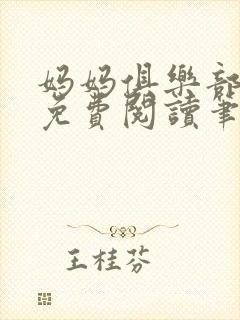 妈妈俱樂部
免費閱讀筆
王桂芬